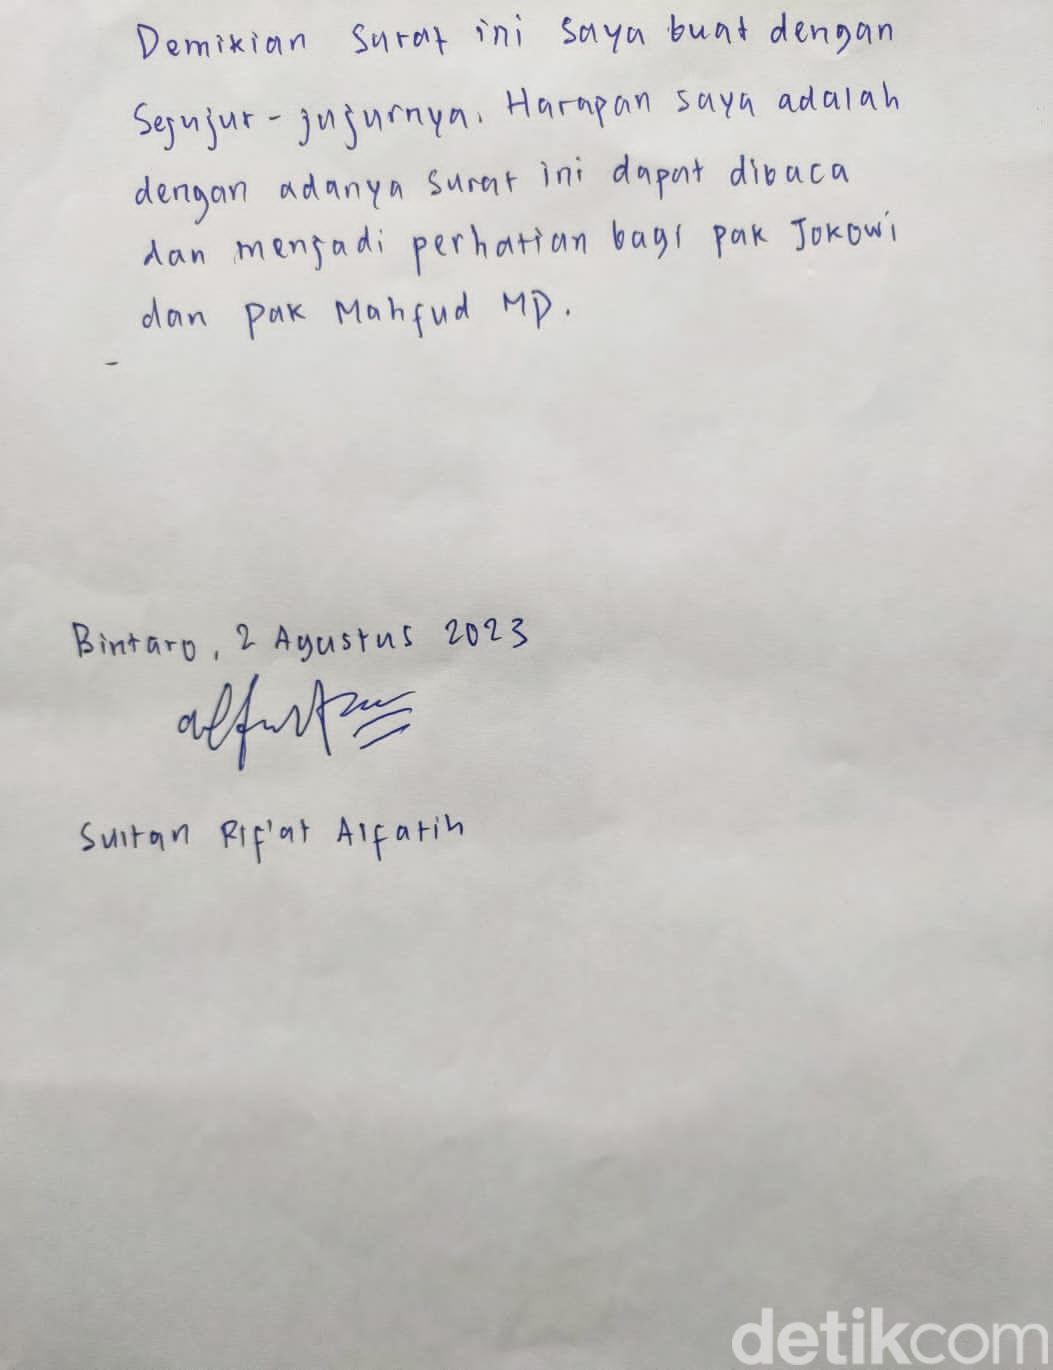 Demikian surat ini saya buat dengan
Sejujur-jujurnya. Harapan saya adalah
dengan adanya surat ini dapat dibaca
dan menjadi perhatian bagi pak Jokowi
dan pak Mahfud MD.
Bintaro, 2 Agustus 2023
Sultan Rif'at Alfatih
detikcom